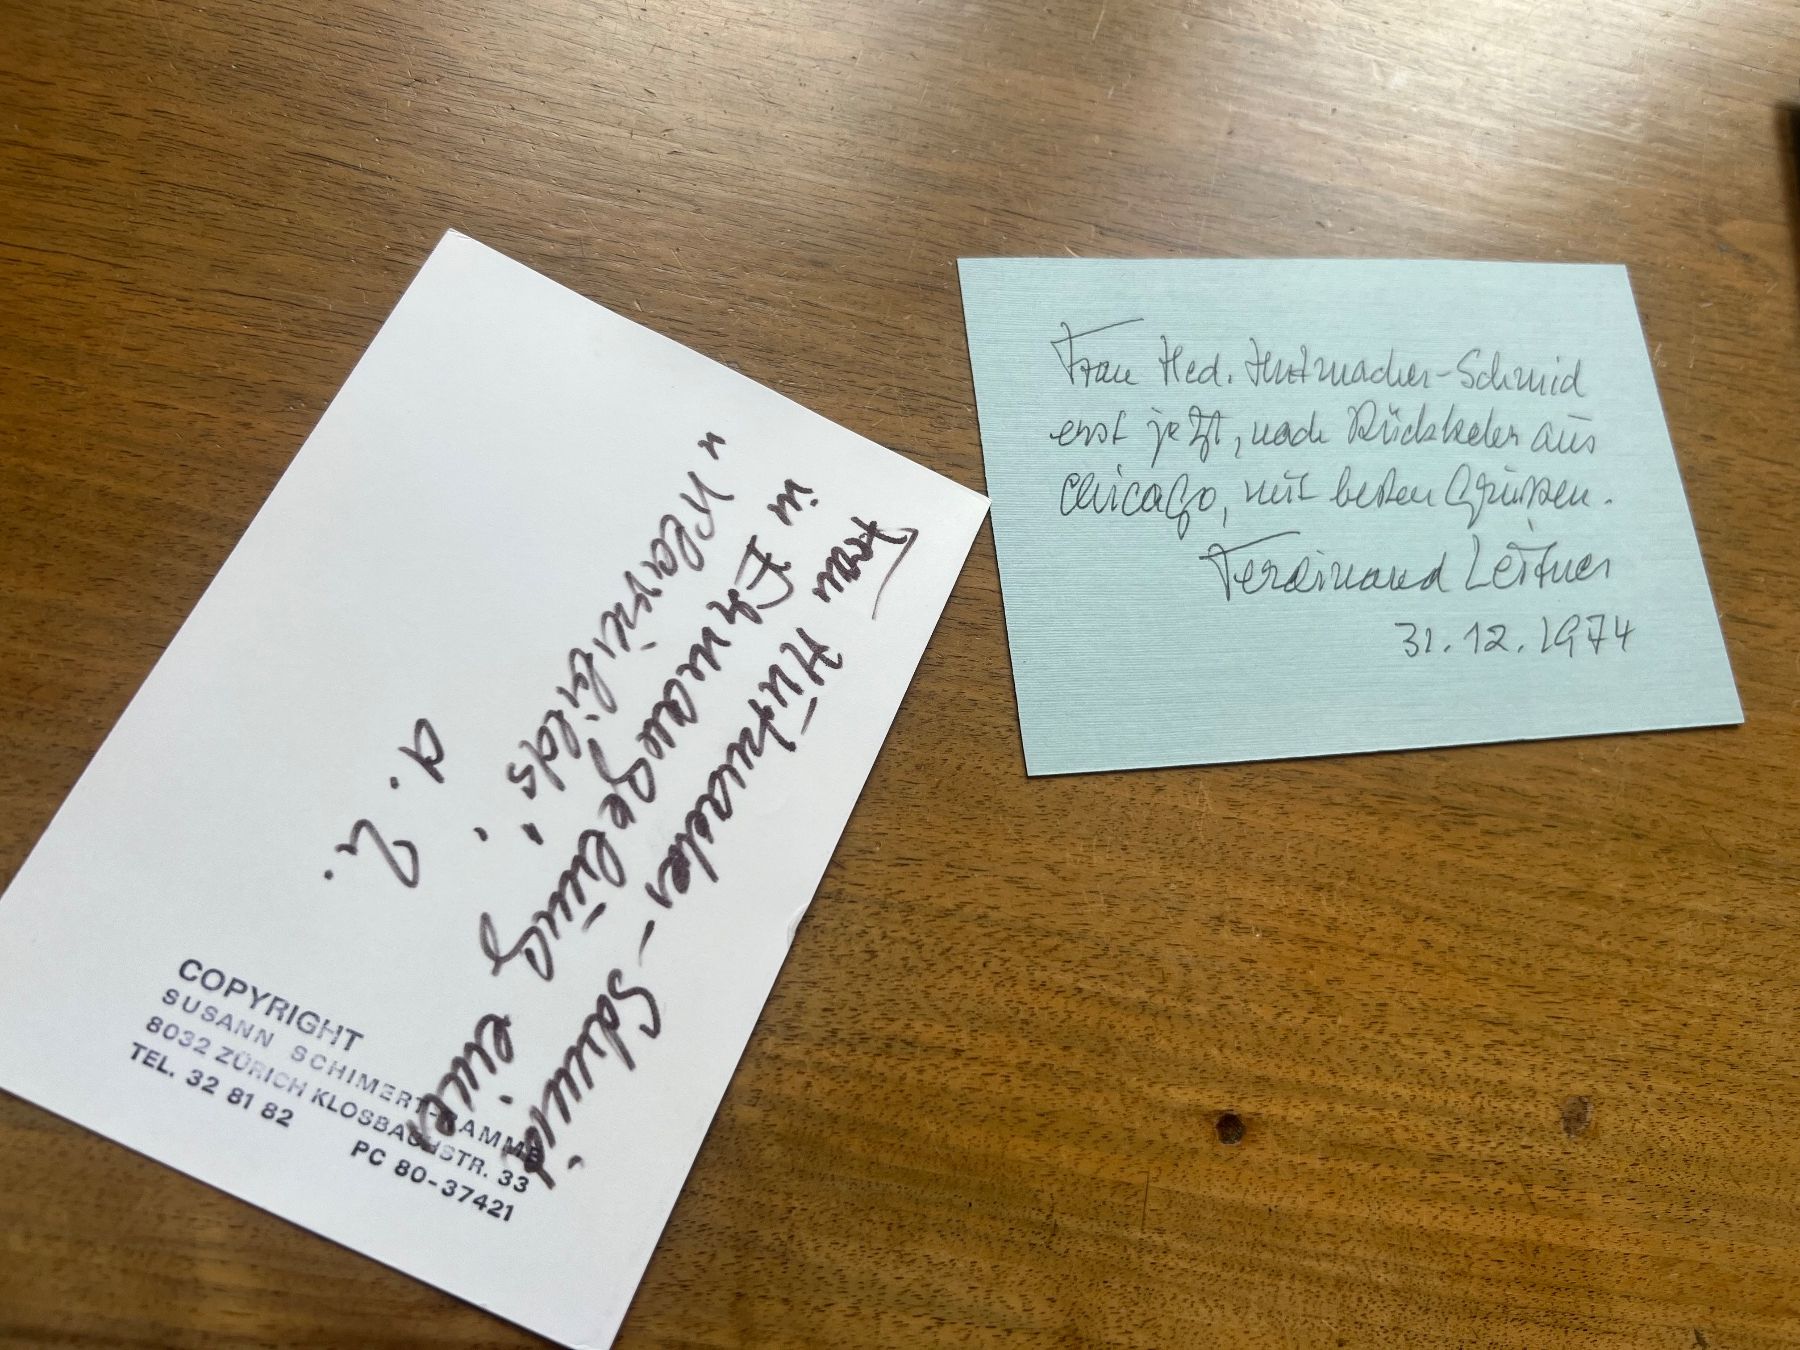 Frau Hutmacher-Schmid
in Ermangelung eines
"Klavierbilds",
a. L.
COPYRIGHT
SUSANN SCHIMERT-RAMME
8032 ZÜRICH KLOSBACHSTR. 33
TEL. 32 81 82 PC 80-37421
Frau Hed. Hutmacher-Schmid
erst jetzt, nach Rückkehr aus
Chicago, mit besten Grüssen.
Ferdinand Leitner
31.12.1974